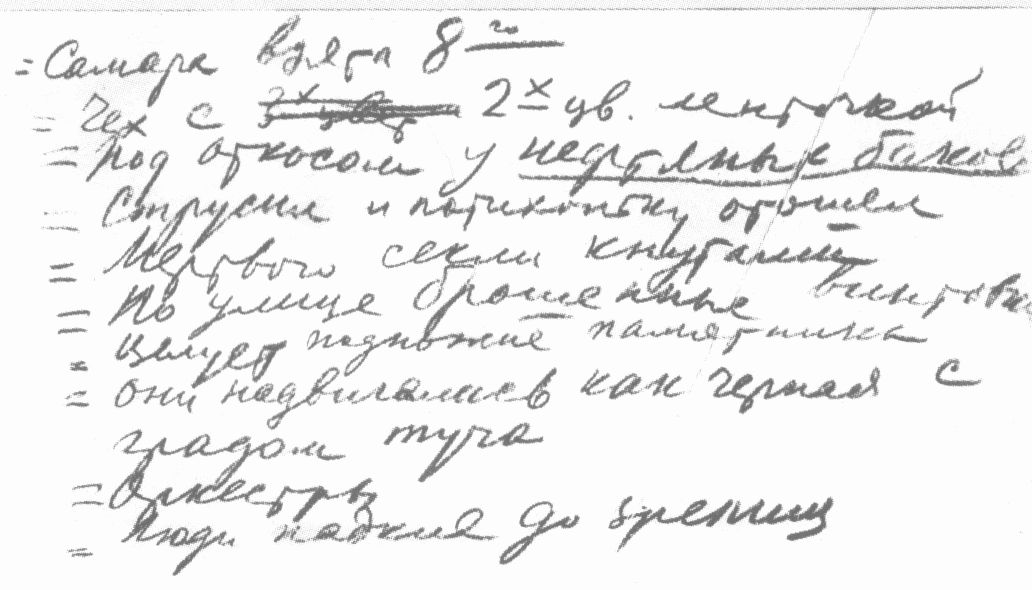 = Самара взята 8го
= Чех с 2х цв. ленточкой
= под откосом у нефтяных баков
= Струсил и потихоньку отошел
= Мертвого секли кнутами
= По улице брошенные винтовки
= Целует подножие памятника
= они надвигались как черная с
градом туча
= Оркестры
= Люди падкие до зрелищ